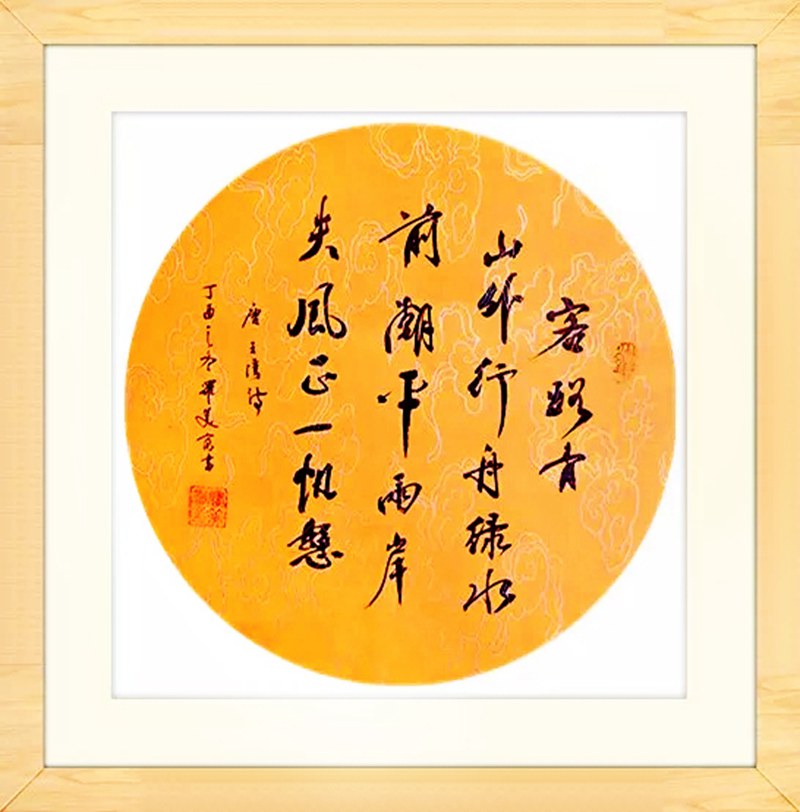 客路青
山外行舟绿水
前潮平兩岸
失風正一帆懸
唐王湾诗
丁酉之美书